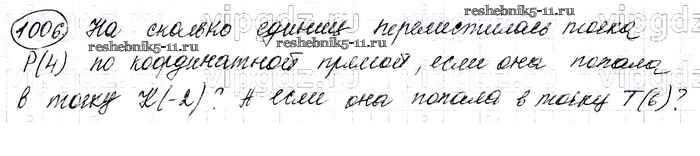 1006. На сколько единиц переместилась точка
P(4) по координатной прямой, если она попала
в точку K(-2)? А если она попала в точку T(6)?
reshebnik5-11.ru
reshebnik5-11.ru